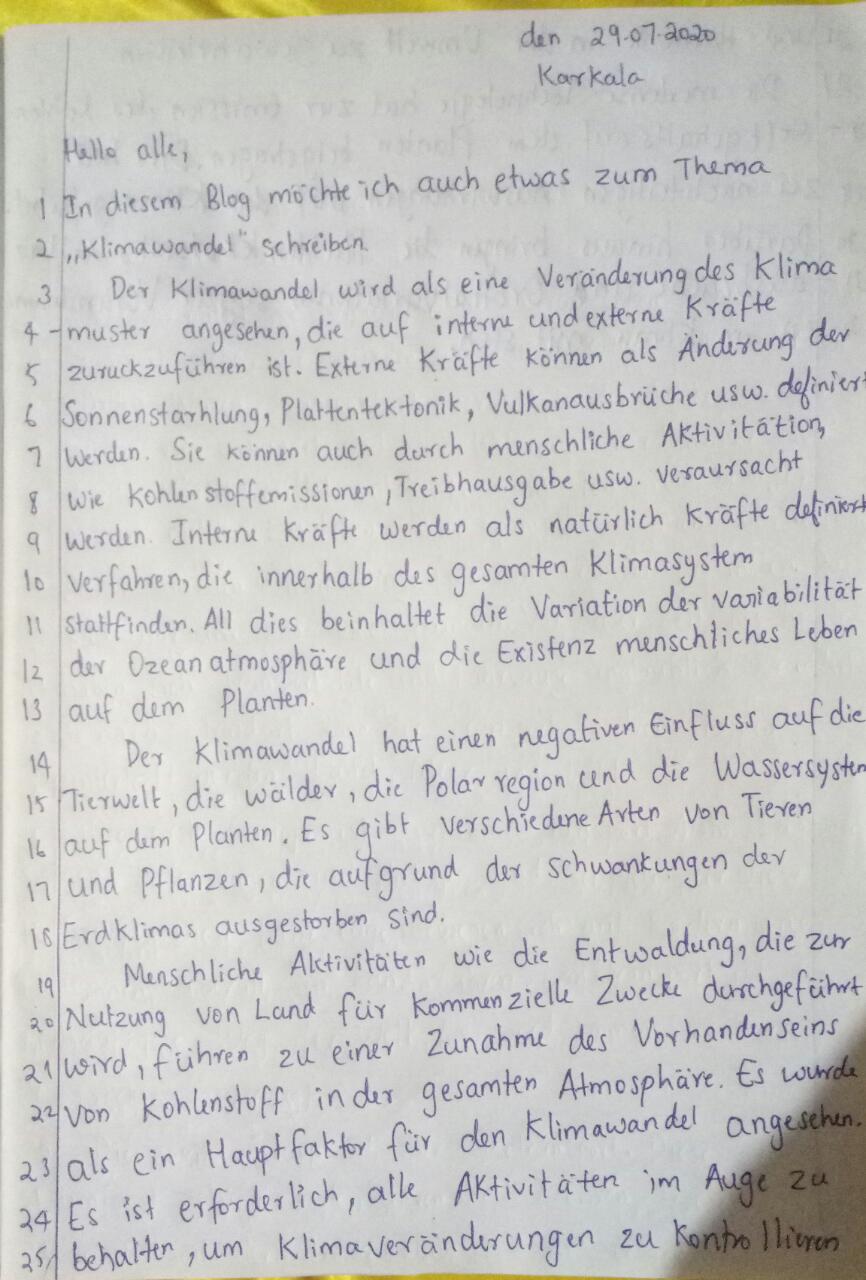 den 29.07.2020
Karkala
Hello alle,
1 In diesem Blog möchte ich auch etwas zum Thema
2 „Klimawandel" schreiben.
3 Der Klimawandel wird als eine Veränderung des Klima
4 -muster angesehen, die auf interne und externe Kräfte
5 zuruckzuführen ist. Externe Kräfte können als Änderung der
6 Sonnenstarhlung, Plattentektonik, Vulkanausbrüche usw. definiert
7 werden. Sie können auch durch menschliche Aktivitätion,
8 wie Kohlenstoffemissionen, Treibhausgabe usw. veraursacht
9 werden. Interne Kräfte werden als natürlich Kräfte definiert
10 verfahren, die innerhalb des gesamten Klimasystem
11 stattfinden. All dies beinhaltet die Variation der variabilität
12 der Ozeanatmosphäre und die Existenz menschliches Leben
13 auf dem Planten.
14 Der Klimawandel hat einen negativen Einfluss auf die
15 Tierwelt, die wälder, die Polarregion und die Wassersystem
16 auf dem Planten. Es gibt verschiedene Arten von Tieren
17 und Pflanzen, die aufgrund der schwankungen der
18 Erdklimas ausgestorben sind.
19 Menschliche Aktivitäten wie die Entwaldung, die zur
20 Nutzung von Land für kommenzielle Zwecke durchgeführt
21 wird, führen zu einer Zunahme des Vorhandenseins
22 von Kohlenstoff in der gesamten Atmosphäre. Es wurde
23 als ein Hauptfaktor für den Klimawandel angesehen.
24 Es ist erforderlich, alle Aktivitäten im Auge zu
25 behalten, um Klimaveränderungen zu kontrollieren